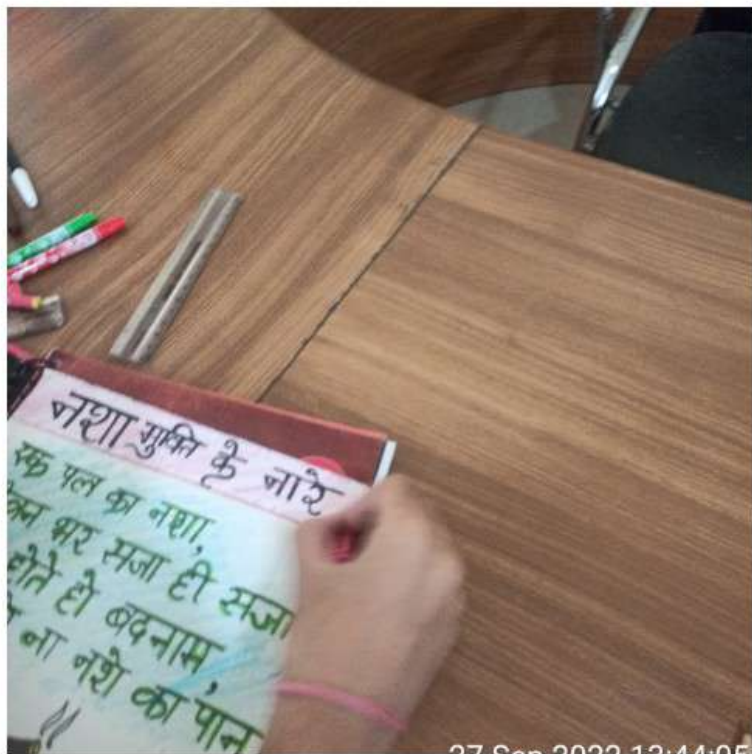 नशा मुक्ति के नारे
एक पल का नशा,
भर सजा ही सजा
होते हो बदनाम,
ना नशे का पान
27 Sep 2022 12:44:05